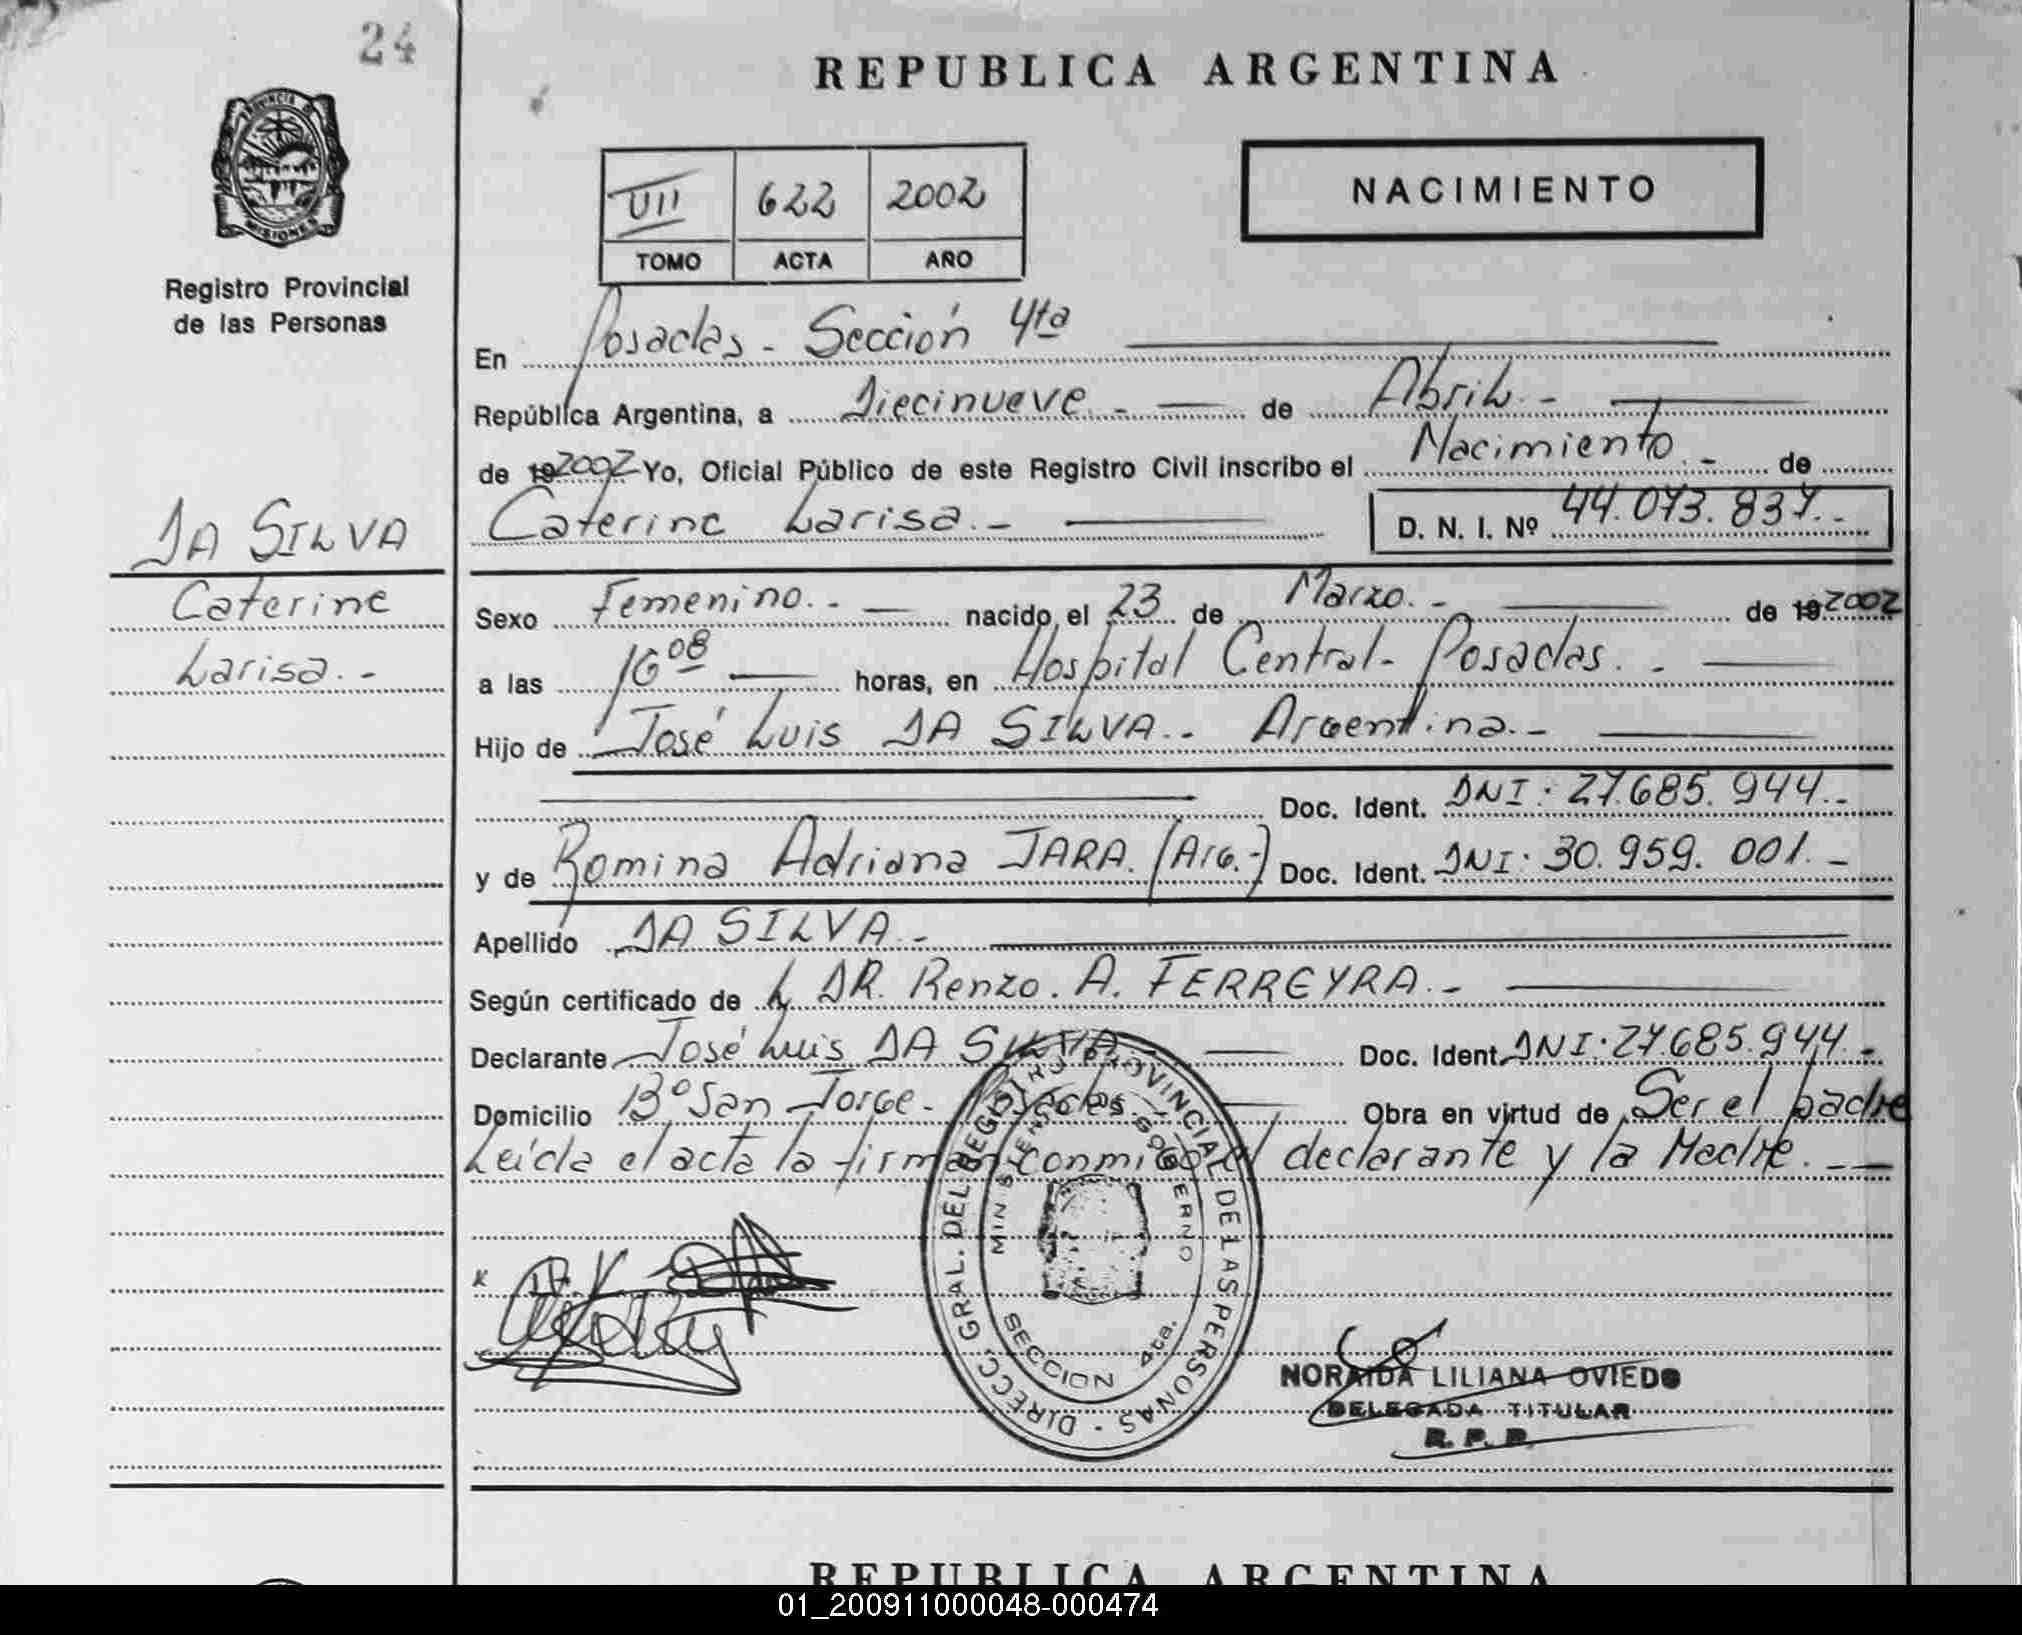 24
REPUBLICA ARGENTINA
PROVINCIA DE
MISIONES
Registro Provincial
de las Personas
VII 622 2002
TOMO ACTA AÑO
NACIMIENTO
En Posadas - Sección 4ta
República Argentina, a Diecinueve.- de Abril.-
de 19 2002 Yo, Oficial Público de este Registro Civil inscribo el Nacimiento.- de
Caterine Larisa.- D. N. I. Nº 44.073.837.-
DA SILVA
Caterine
Larisa.-
Sexo Femenino.- nacido el 23 de Marzo.- de 19 2002
a las 16 08 horas, en Hospital Central - Posadas.-
Hijo de José Luis DA SILVA.- Argentina.-
Doc. Ident. DNI: 27.685.944.-
y de Romina Adriana JARA. (Arg.-) Doc. Ident. DNI: 30.959.001.-
Apellido DA SILVA.-
Según certificado de DR. Renzo. A. FERREYRA.-
Declarante José Luis DA SILVA.- Doc. Ident. DNI: 27.685.944.-
Domicilio Bº San Jorge - Posadas.- Obra en virtud de Ser el padre
Leída el acta la firman conmigo el declarante y la Madre.-
DIRECC. GRAL. DEL REGISTRO PROVINCIAL DE LAS PERSONAS -
GOBIERNO
SECCION 4ta.
NORAIDA LILIANA OVIEDO
DELEGADA TITULAR
R. P. P.
REPUBLICA ARGENTINA
01_200911000048-000474